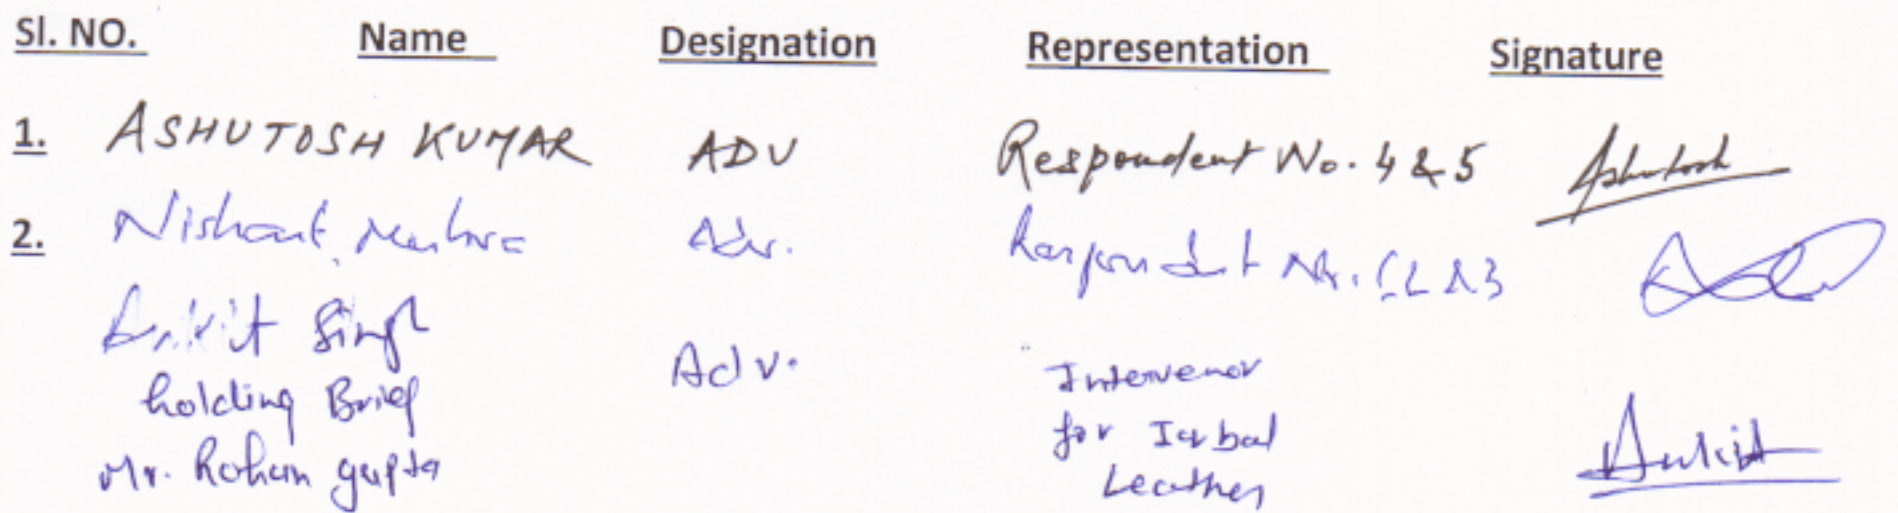 Sl. NO. Name Designation Representation Signature
1. ASHUTOSH KUMAR ADV Respondent No. 4 & 5 Ashutosh
2. Nishant Adv. Respondent No.
Ankit Singh
holding Brief Adv. Intervenor
Mr. Rohan gupta for Iqbal
Leather Ankit